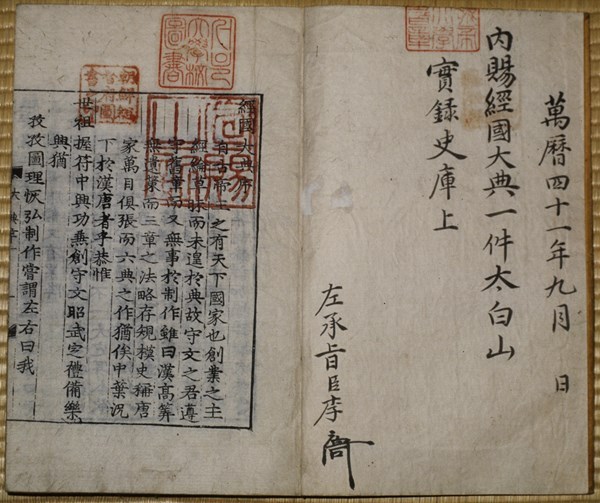 萬曆四十一年九月 日
內賜經國大典一件太白山
實錄史庫上
左承旨臣李
經國大典序
自古帝王之有天下國家也創業之主
經綸草昧而未遑於典故守文之君遵
守舊章而又無事於制作雖曰漢高筭
無遺策而三章之法略存規模史稱唐
家萬目俱張而六典之作猶俟中葉況
下於漢唐者乎恭惟
世祖握符中興功兼創守文昭武定禮備樂
興猶
孜孜圖理恢弘制作嘗謂左右曰我